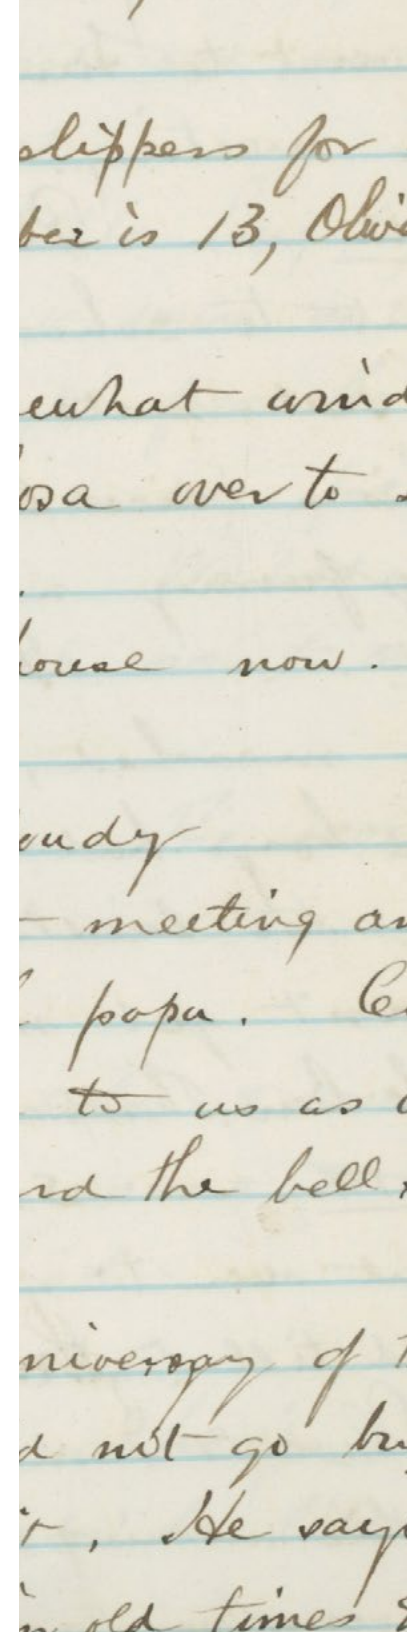 slippers for
ber is 13, Olive
ewhat wind
osa over to
house now.
oudy
meeting an
papa.
to us as
rd the bell,
niversary of t
d not go bu
it, He says
old times